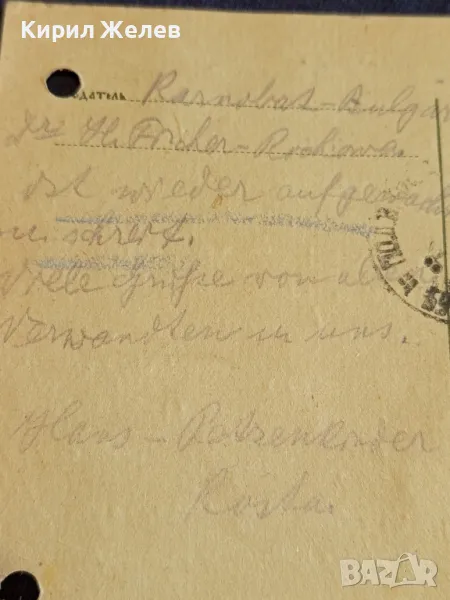 Кирил Желев
одатель Karnobat - Bulgar
Dr H. Fischer - Rockowa.
ist wieder aufgewacht
un schreit.
Viele Grüße von al
Verwandten in uns.
Hans - Katzenkinder
Kosta.
BAZAR